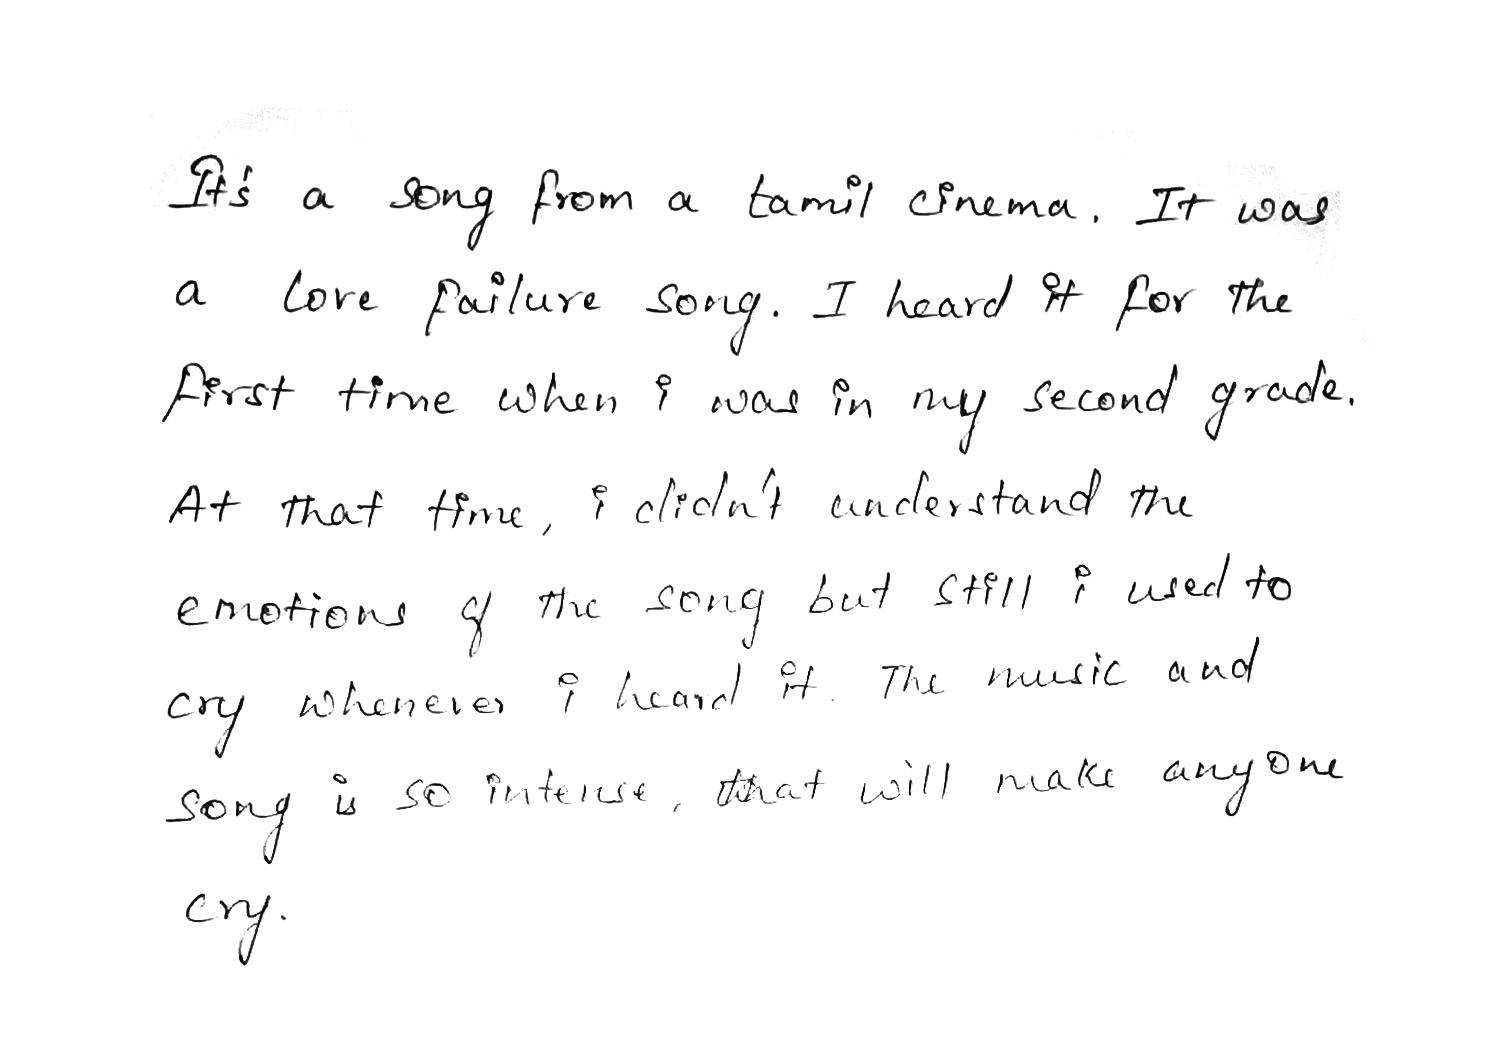 It's a song from a tamil cinema. It was
a love failure song. I heard it for the
first time when i was in my second grade.
At that time, i didn't understand the
emotions of the song but still i used to
cry whenever i heard it. The music and
song is so intense, that will make anyone
cry.